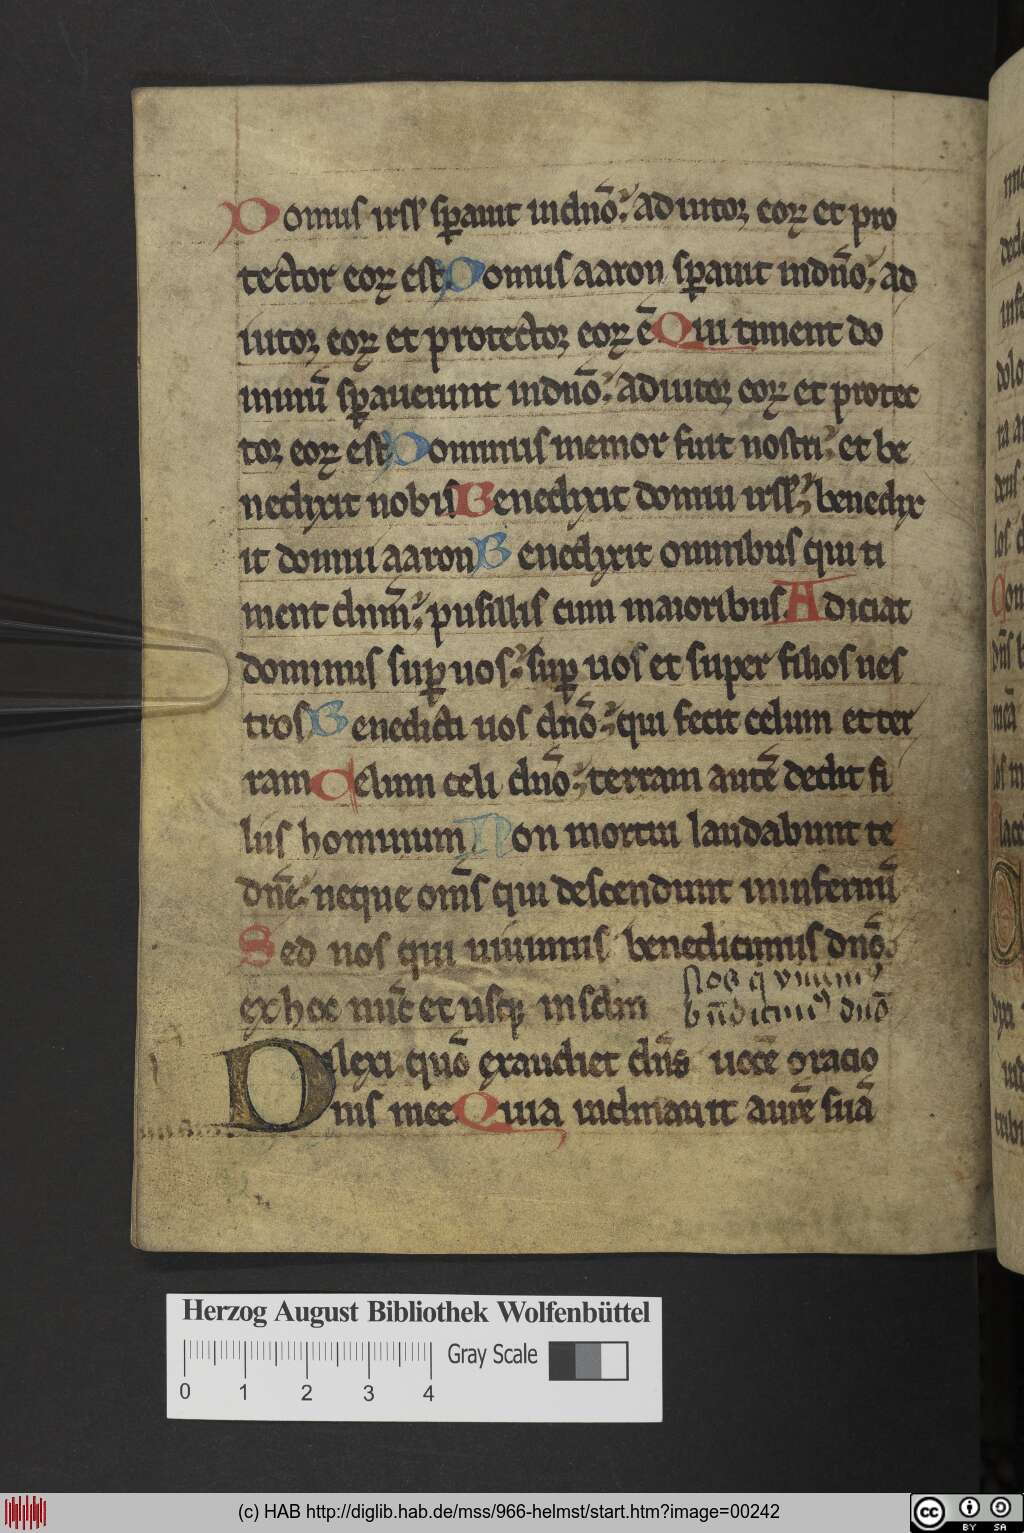 Domus irsl' sꝑauit in dn̄o. adiutoꝛ eoꝝ et pro
tector eoꝝ est Domus aaron sꝑauit in dn̄o, ad
iutoꝛ eoꝝ et protectoꝛ eoꝝ ē Qui timent do
minū sꝑauerunt in dn̄o. adiutoꝛ eoꝝ et protec
toꝛ eoꝝ est Dominus memor fuit nostri et be
nedixit nobis Benedixit domui irsl' benedix
it domui aaron Benedixit omnibus qui ti
ment dn̄m. pusillis cum maioribus Adiciat
dominus suꝑ uos. suꝑ uos et super filios ues
tros Benedicti uos dn̄o. qui fecit celum et ter
ram Celum celi dn̄o. terram autē dedit fi
liis hominum Non mortui laudabunt te
dn̄e. neque om̄s qui descendunt in infernū
Sed nos qui uiuimus benedicimus dn̄o
ex hoc nūc et usqꝫ in sclm
Nos q̇ viuim⁹
bn̄dicim⁹ dn̄o
Dilexi quō exaudiet dn̄s uocē oracio
nis mee Quia inclinauit aurē suā
Herzog August Bibliothek Wolfenbüttel
Gray Scale
0 1 2 3 4
(c) HAB http://diglib.hab.de/mss/966-helmst/start.htm?image=00242
cc BY SA